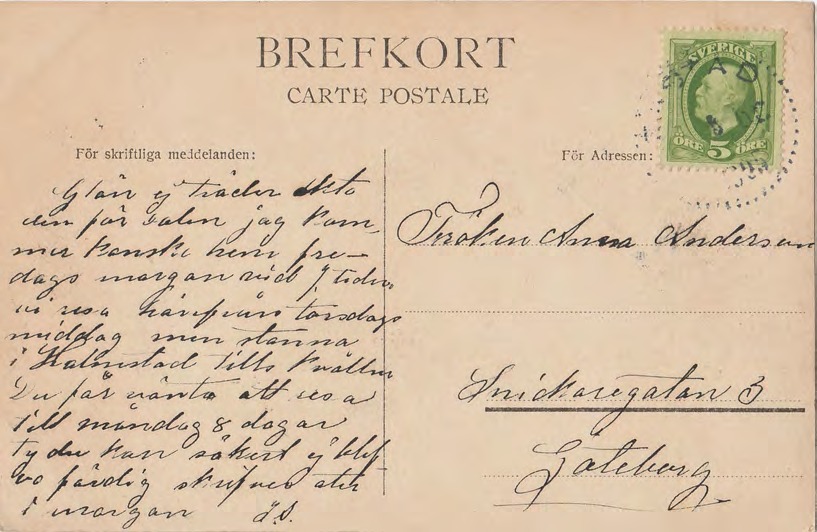 BREFKORT
CARTE POSTALE
SVERIGE
ÖRE 5 ÖRE
För skriftliga meddelanden:
För Adressen:
Glöm ej
den för salen jag kom-
mer kanske hem fre-
dags morgan vid 7 tiden
vi resa härifrån torsdags
middag men stanna
i Halmstad tills kvällen
Du får vänta att resa
till måndag 8 dagar
ty du kan säkert ej blif-
va färdig skrifver åter
i morgan
Fröken Anna Anderson
Snickaregatan 3
Göteborg